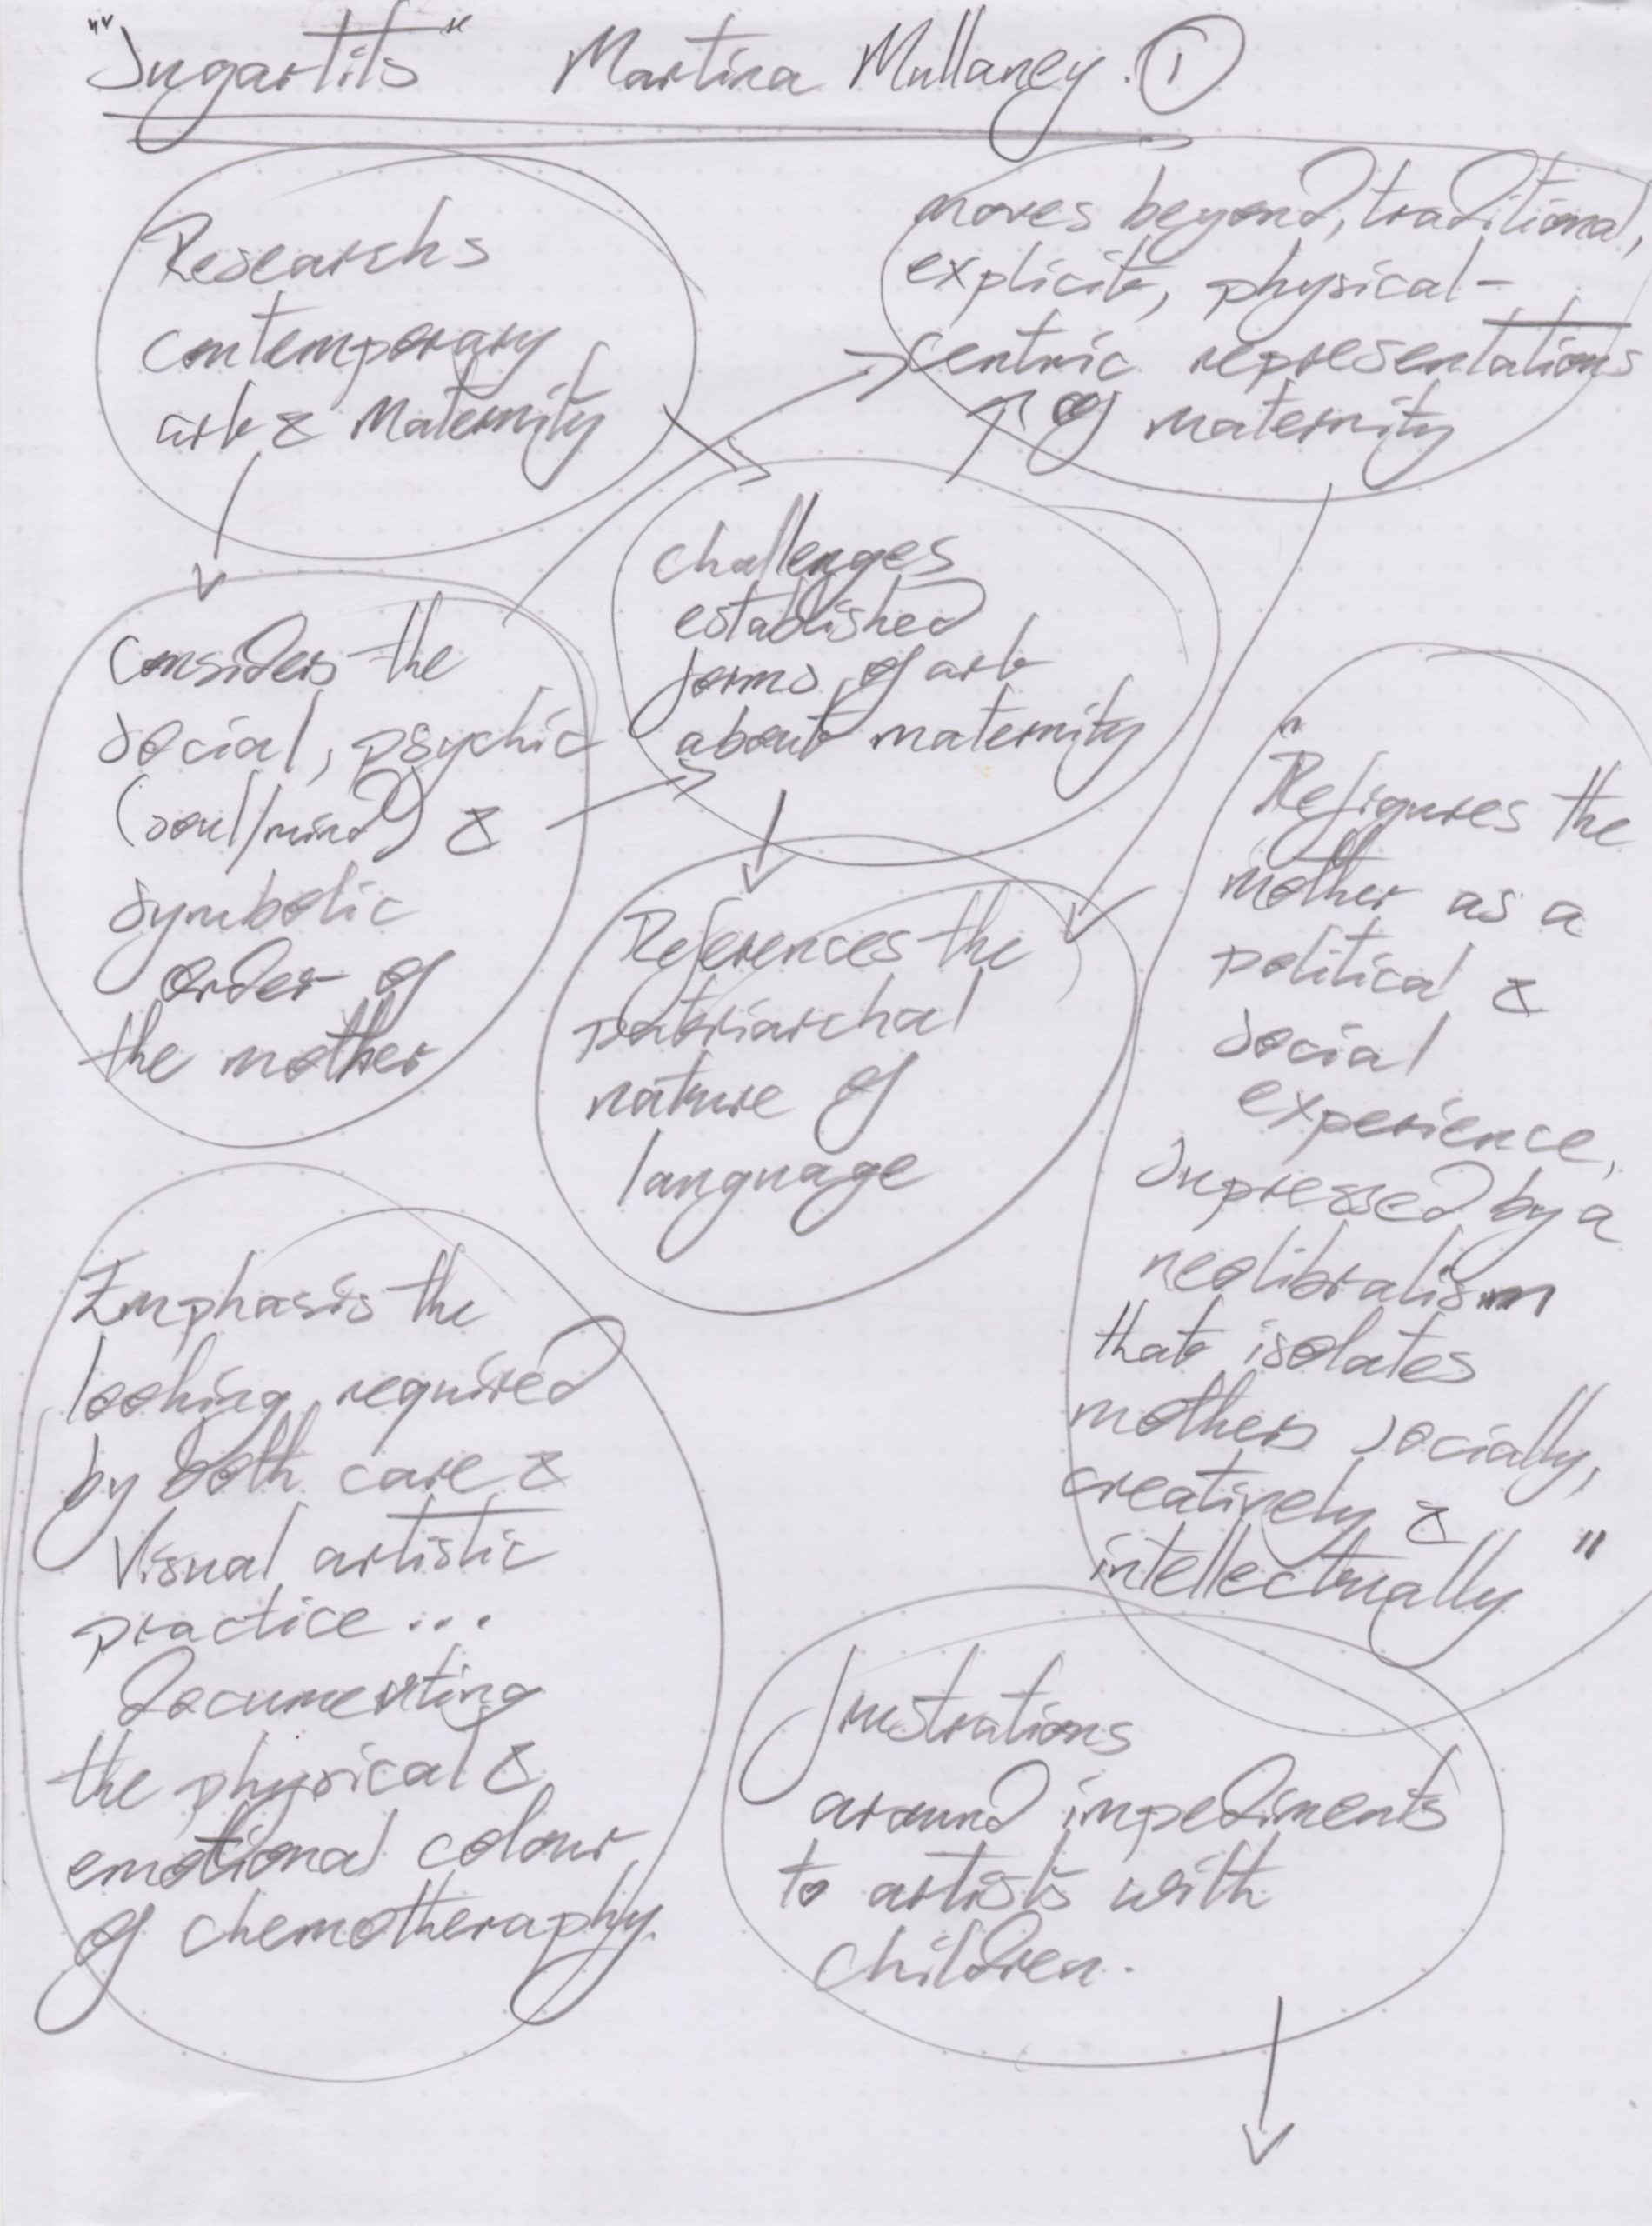 "Sugartits" Martina Mullaney. 1
Researchs
contemporary
art & Maternity
moves beyond, traditional,
explicit, physical-
centric representations
of maternity
challenges
established
forms of art
about maternity
Considers the
social, psychic
(soul/mind) &
symbolic
order of
the mother
References the
patriarchal
nature of
language
"Refigures the
mother as a
political &
social
experience,
supressed by a
neolibralism
that isolates
mothers socially,
creatively &
intellectually"
Emphasis the
looking required
by both care &
Visual artistic
practice...
Documenting
the physical &
emotional colour
of chemotheraphy.
frustrations
around impediments
to artists with
children.